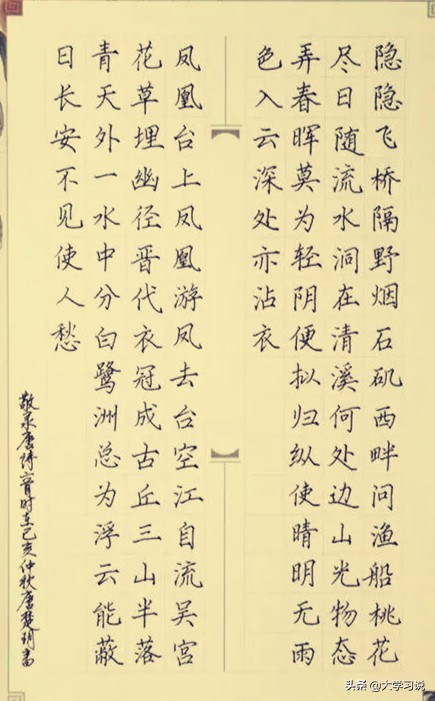 隐隐飞桥隔野烟石矶西畔问渔船桃花
尽日随流水洞在清溪何处边山光物态
弄春晖莫为轻阴便拟归纵使晴明无雨
色入云深处亦沾衣
凤凰台上凤凰游凤去台空江自流吴宫
花草埋幽径晋代衣冠成古丘三山半落
青天外一水中分白鹭洲总为浮云能蔽
日长安不见使人愁
敬录唐诗三首时在己亥仲秋唐楚玥书
头条 @大学习说